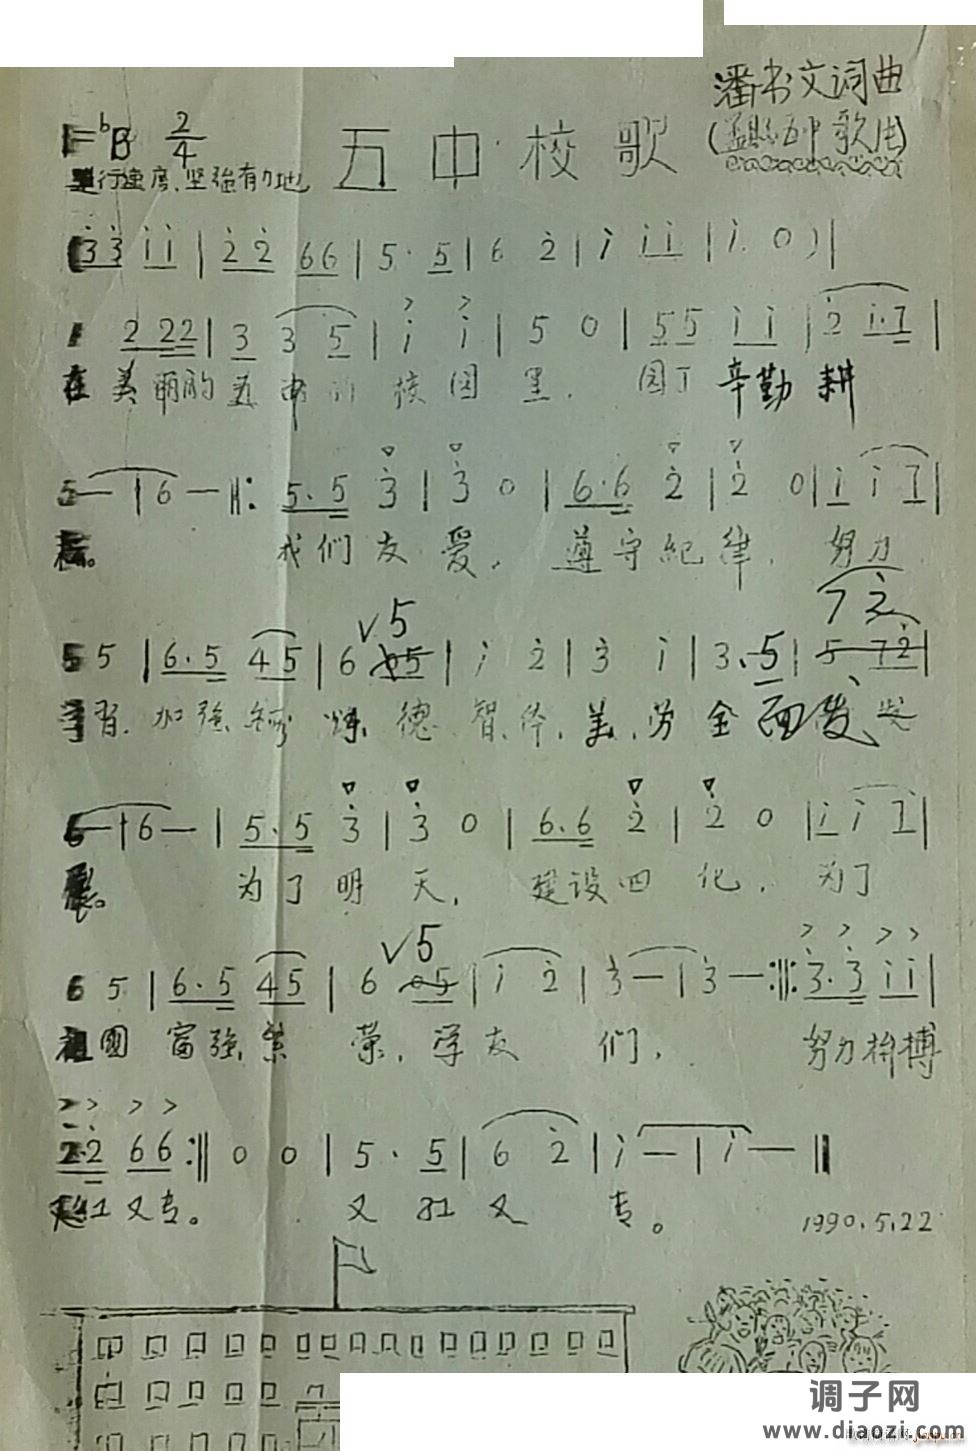 潘书文词曲
1=ᵇB 2/4 五中校歌
进行速度、坚强有力地
(3̇3̇ i i | 2̇2̇ 66 | 5· 5 | 6 2̇ | i i i | i 0) |
1 2 22 | 3 3 5 | i i | 5 0 | 55 i i | 2̇ i·7 |
在美丽的五中的校园里，园丁辛勤耕
5 — | 6 — ‖: 5·5 3̇ | 3̇ 0 | 6·6 2̇ | 2̇ 0 | i i 7 |
耘。 我们友爱，遵守纪律，努力
5 5 | 6·5 45 | 6 √5 | i 2̇ | 3̇ i | 3·5 | 7 2̇ |
学习，加强锻炼，德、智、体、美、劳全面发
6 — | 6 — | 5·5 3̇ | 3̇ 0 | 6·6 2̇ | 2̇ 0 | i i 7 |
展。 为了明天，建设四化，为了
6 5 | 6·5 45 | 6 √5 | i 2̇ | 3̇ — | 3̇ — :‖: 3̇·3̇ i i |
祖國富强繁荣，学友们，努力拚搏
2̇·2̇ 66 :‖ 0 0 | 5· 5 | 6 2̇ | i — | i — ‖
又红又专。 又红又专。
1990.5.22
调子网
www.diaozi.com